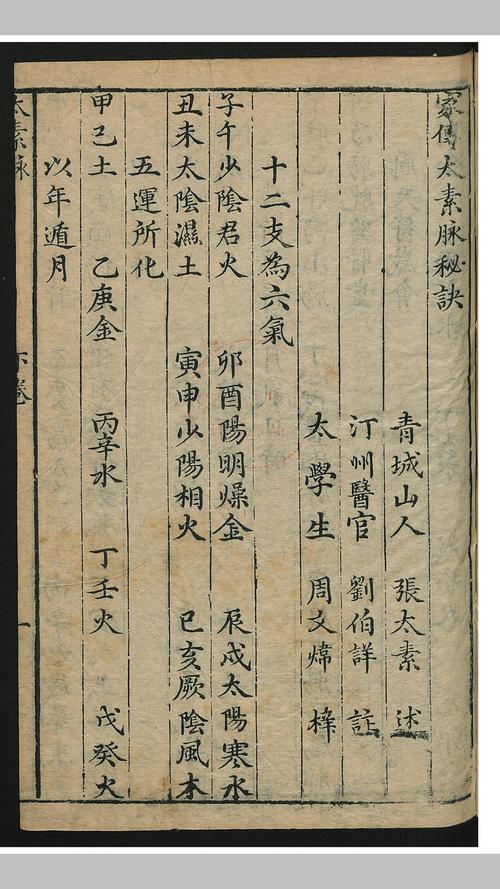 家傳太素脈秘訣
青城山人 張太素 述
汀州醫官 劉伯詳 註
太學生 周文煒 梓
十二支為六氣
子午少陰君火 卯酉陽明燥金 辰戌太陽寒水
丑未太陰濕土 寅申少陽相火 巳亥厥陰風木
五運所化
甲己土 乙庚金 丙辛水 丁壬火 戊癸火
以年遁月
太素脉 下卷 一